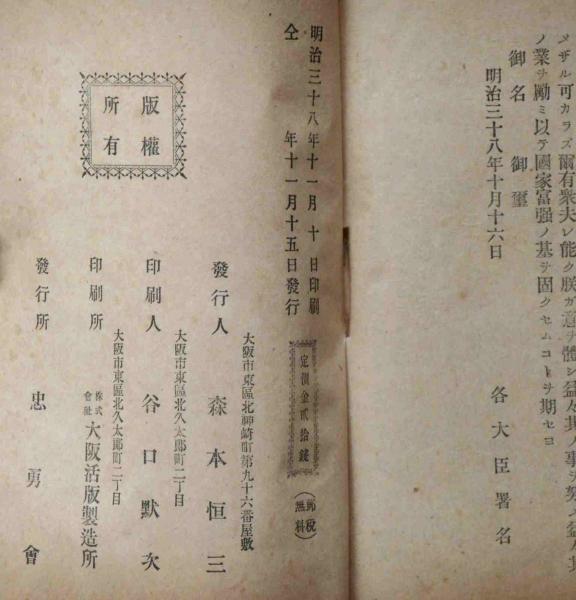 メザル可カラズ爾有衆夫レ能ク朕ガ意ヲ體シ益々其ノ事ヲ努メ益々其
ノ業ヲ勵ミ以テ國家富强ノ基ヲ固クセムコトヲ期セヨ
御名 御璽
明治三十八年十月十六日
各大臣署名
明治三十八年十一月十日印刷
仝 年十一月十五日發行
定價金貳拾錢
(郵稅無料)
版權所有
大阪市東區北神崎町第九十六番屋敷
發行人 森本恒三
大阪市東區北久太郎町二丁目
印刷人 谷口默次
大阪市東區北久太郎町二丁目
印刷所 株式會社 大阪活版製造所
發行所 忠勇會